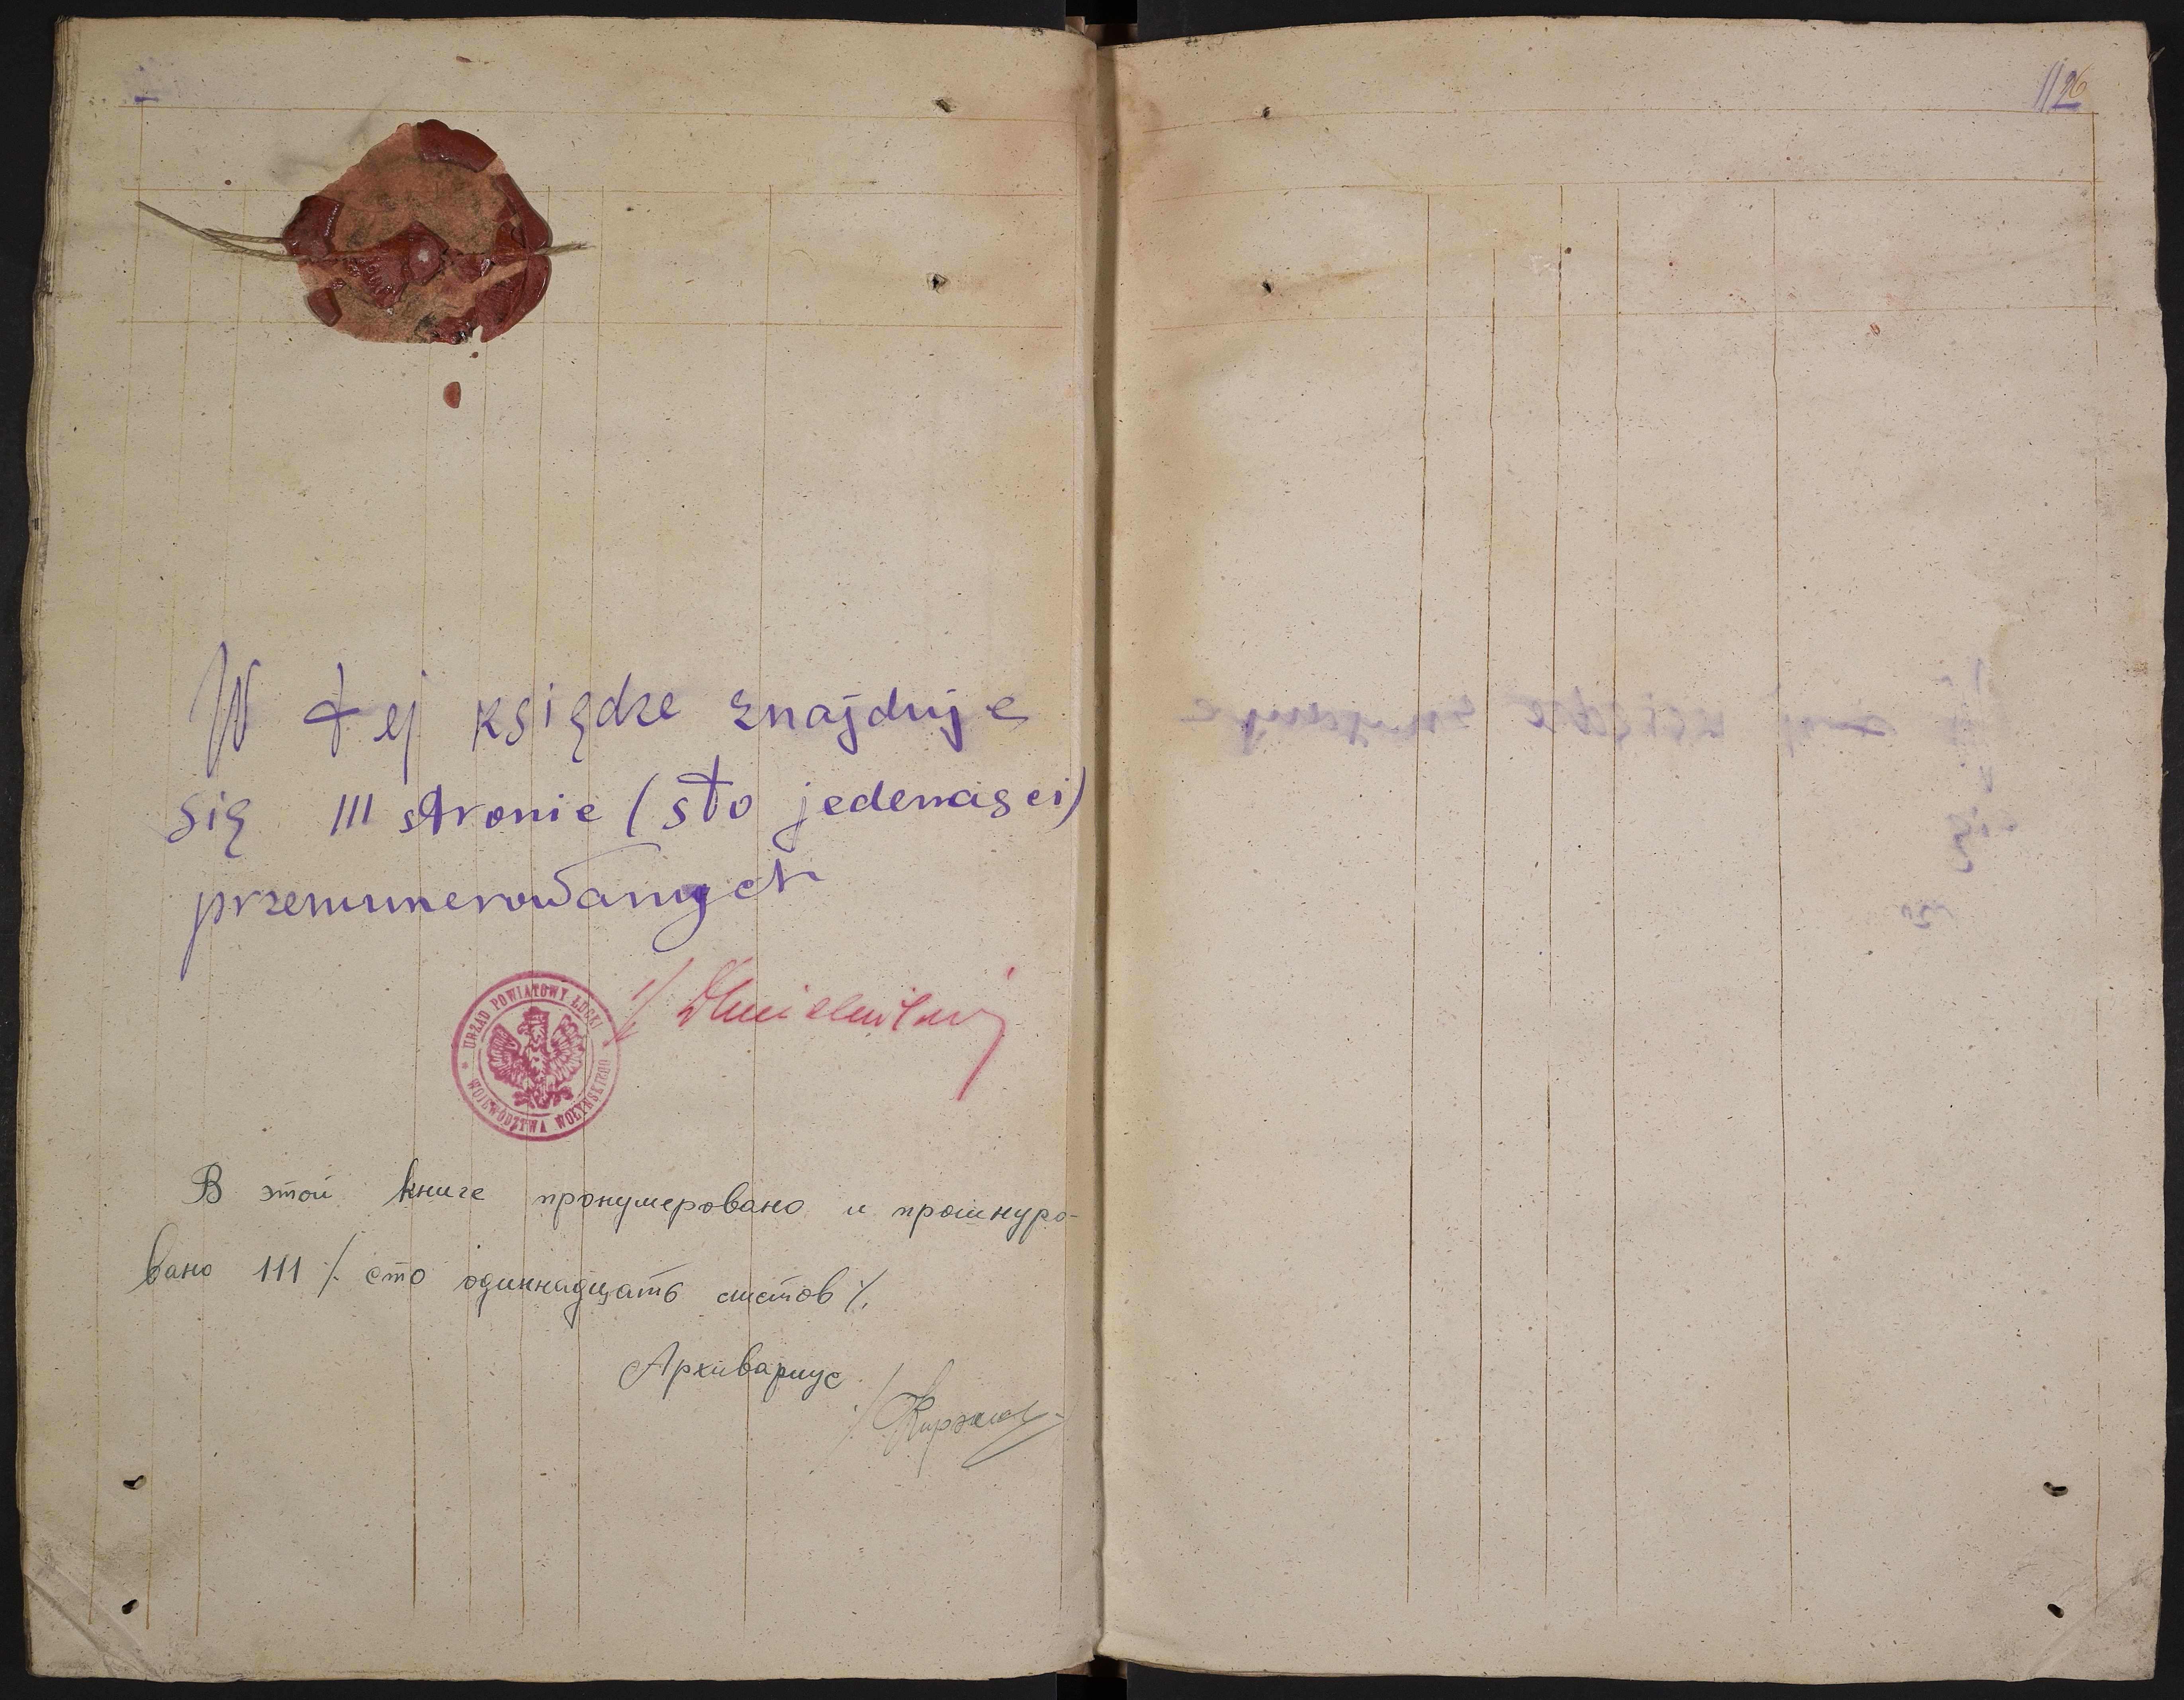 W tej księdze znajduje
się 111 stronie (sto jedenasci)
przenumerowanych
URZĄD POWIATOWY ŁUCKI
WOJEWÓDZTWA WOŁYŃSKIEGO
В этой книге пронумеровано и прошнуро-
вано 111 /. сто одиннадцать листов /.
Архивариус